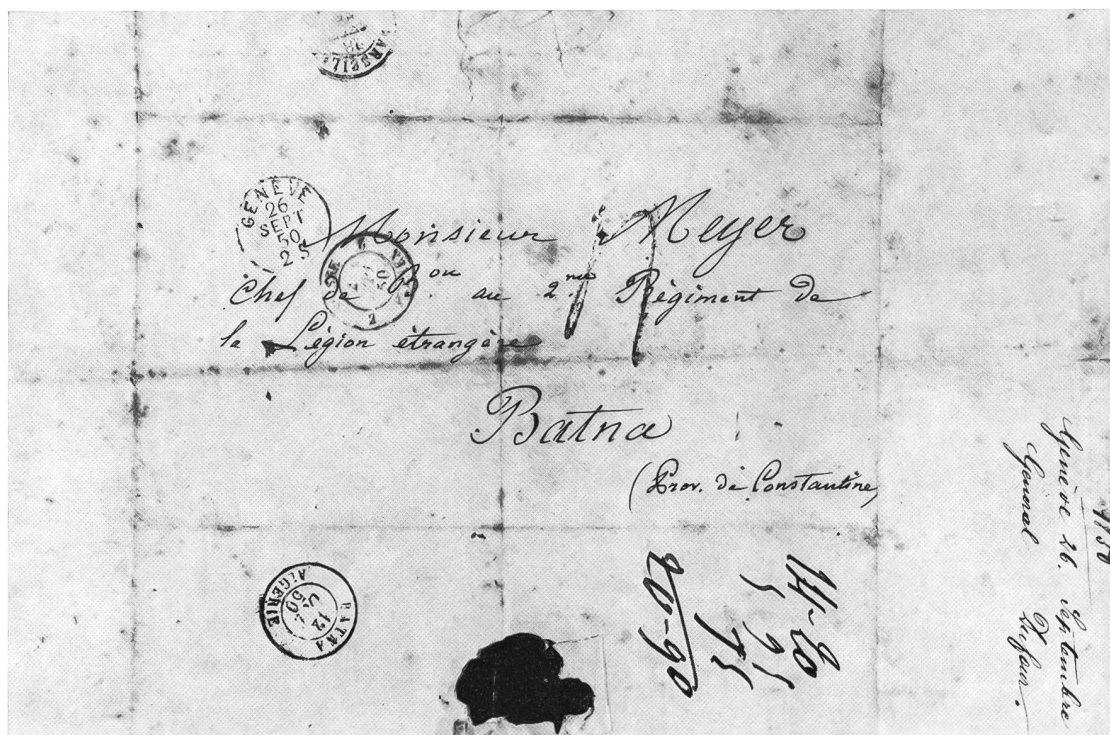 GENÈVE
26
SEPT
50
2 S
Monsieur Meyer
Chef de B.on au 2.me Régiment de
la Légion étrangère
Batna
(Prov. de Constantine)
BATNA
12
50
ALGÉRIE
14-20
5 95
75
20-90
1850
Genève 26. Septembre
General Dufour.